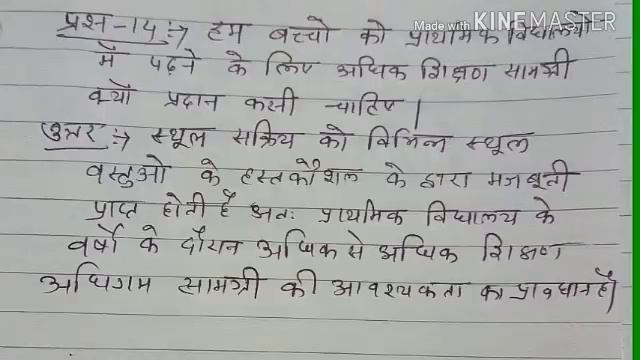 Made with KINEMASTER
प्रश्न-14 :→ हम बच्चो को प्राथमिक विद्यालयो
में पढ़ने के लिए अधिक शिक्षण सामग्री
क्यों प्रदान करनी चाहिए |
उत्तर :→ स्थूल सक्रिय को विभिन्न स्थूल
वस्तुओ के हस्तकौशल के द्वारा मजबूती
प्राप्त होती है अतः प्राथमिक विद्यालय के
वर्षो के दौरान अधिक से अधिक शिक्षण
अधिगम सामग्री की आवश्यकता का प्रावधान है|